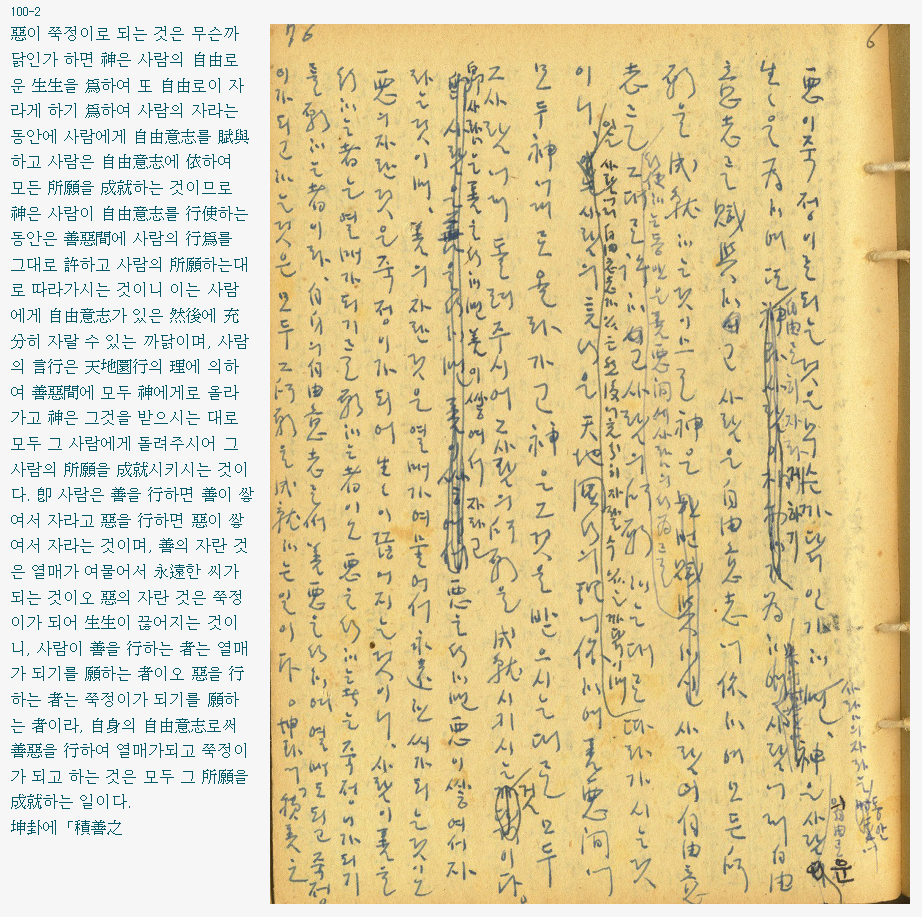 100-2
惡이 쭉정이로 되는 것은 무슨까
닭인가 하면 神은 사람의 自由로
운 生生을 爲하여 또 自由로이 자
라게 하기 爲하여 사람의 자라는
동안에 사람에게 自由意志를 賦與
하고 사람은 自由意志에 依하여
모든 所願을 成就하는 것이므로
神은 사람이 自由意志를 行使하는
동안은 善惡間에 사람의 行爲를
그대로 許하고 사람의 所願하는대
로 따라가시는 것이니 이는 사람
에게 自由意志가 있은 然後에 充
分히 자랄 수 있는 까닭이며, 사람
의 言行은 天地圜行의 理에 의하
여 善惡間에 모두 神에게로 올라
가고 神은 그것을 받으시는 대로
모두 그 사람에게 돌려주시어 그
사람의 所願을 成就시키시는 것이
다. 卽 사람은 善을 行하면 善이 쌓
여서 자라고 惡을 行하면 惡이 쌓
여서 자라는 것이며, 善의 자란 것
은 열매가 여물어서 永遠한 씨가
되는 것이오 惡의 자란 것은 쭉정
이가 되어 生生이 끊어지는 것이
니, 사람이 善을 行하는 者는 열매
가 되기를 願하는 者이오 惡을 行
하는 者는 쭉정이가 되기를 願하
는 者이라, 自身의 自由意志로써
善惡을 行하여 열매가되고 쭉정이
가 되고 하는 것은 모두 그 所願을
成就하는 일이다.
坤卦에 「積善之
76
6
사람의자라는 동안
自由로운
惡이죽정이로되는것은무슨까닭인가하면、神은사람
生生을爲하여또自由로히자라게하기爲하여사람에게自由
意志를賦與하고사람은自由意志에依하여모든所
願을成就하는것이므로神은사람이自由意
志를行使하는동안은善惡間에사람의行爲를
그대로許하고사람의所願하는대로따라가시는것
이니
사람의言行은天地圜行의理에依하여善惡間에
모두神에게로올라가고神은그것을받으시는대로모두
그사람에게돌려주시어그사람의所願을成就시키시는것이다.
卽사람은善을行하면善이쌓여서자라고
惡을行하면惡이쌓여서자
라는것이며、善의자란것은열매가여물어서永遠한씨가되는것이오
惡의자란것은죽정이가되어生生이끊어지는것이니、사람이善을
行하는者는열매가되기를願하는者이오惡을行하는者는죽정이가되기
를願하는者이라、自身의自由意志로써善惡을行하여열매도되고죽정
이가되고하는것은모두그所願을成就하는일이다。坤卦에「積善之